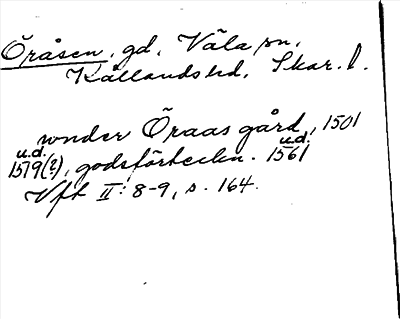 Öråsen, gd, Väla sn,
Kållands hd, Skar. l.
wnder Öraas gård, 1501
u.d. u.d.
1579(?), godsförteckn. 1561
Vft II: 8-9, s. 164.